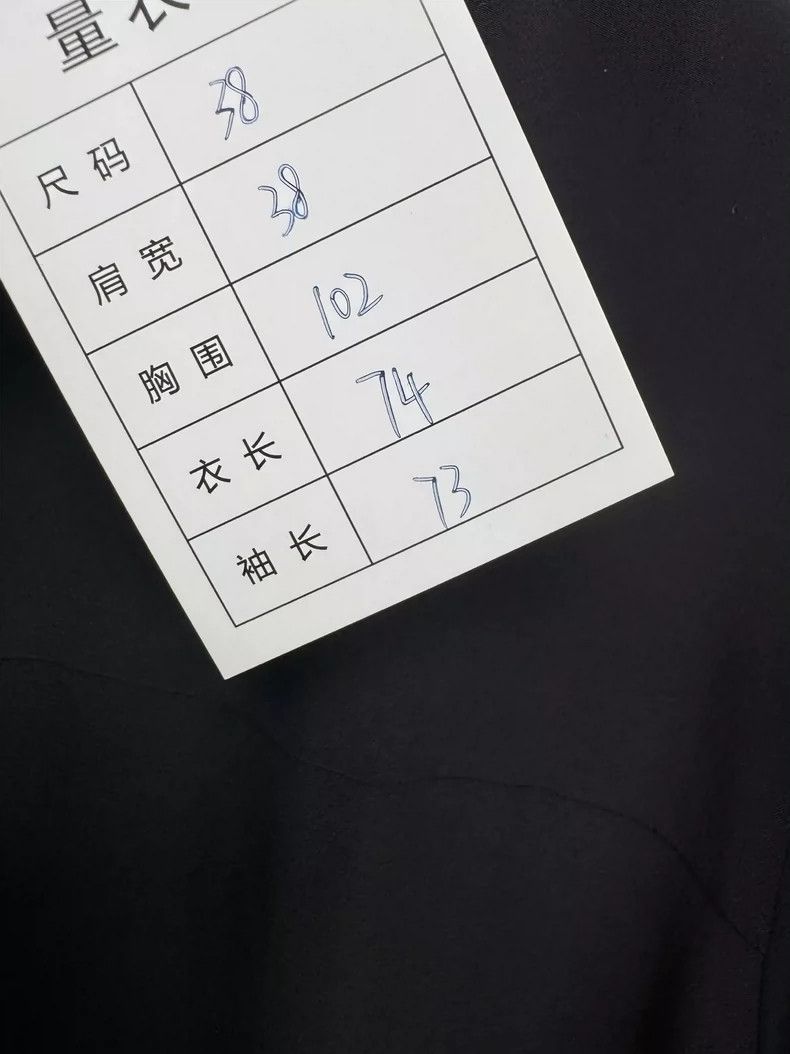 量衣
尺码 38
肩宽 38
胸围 102
衣长 74
袖长 73